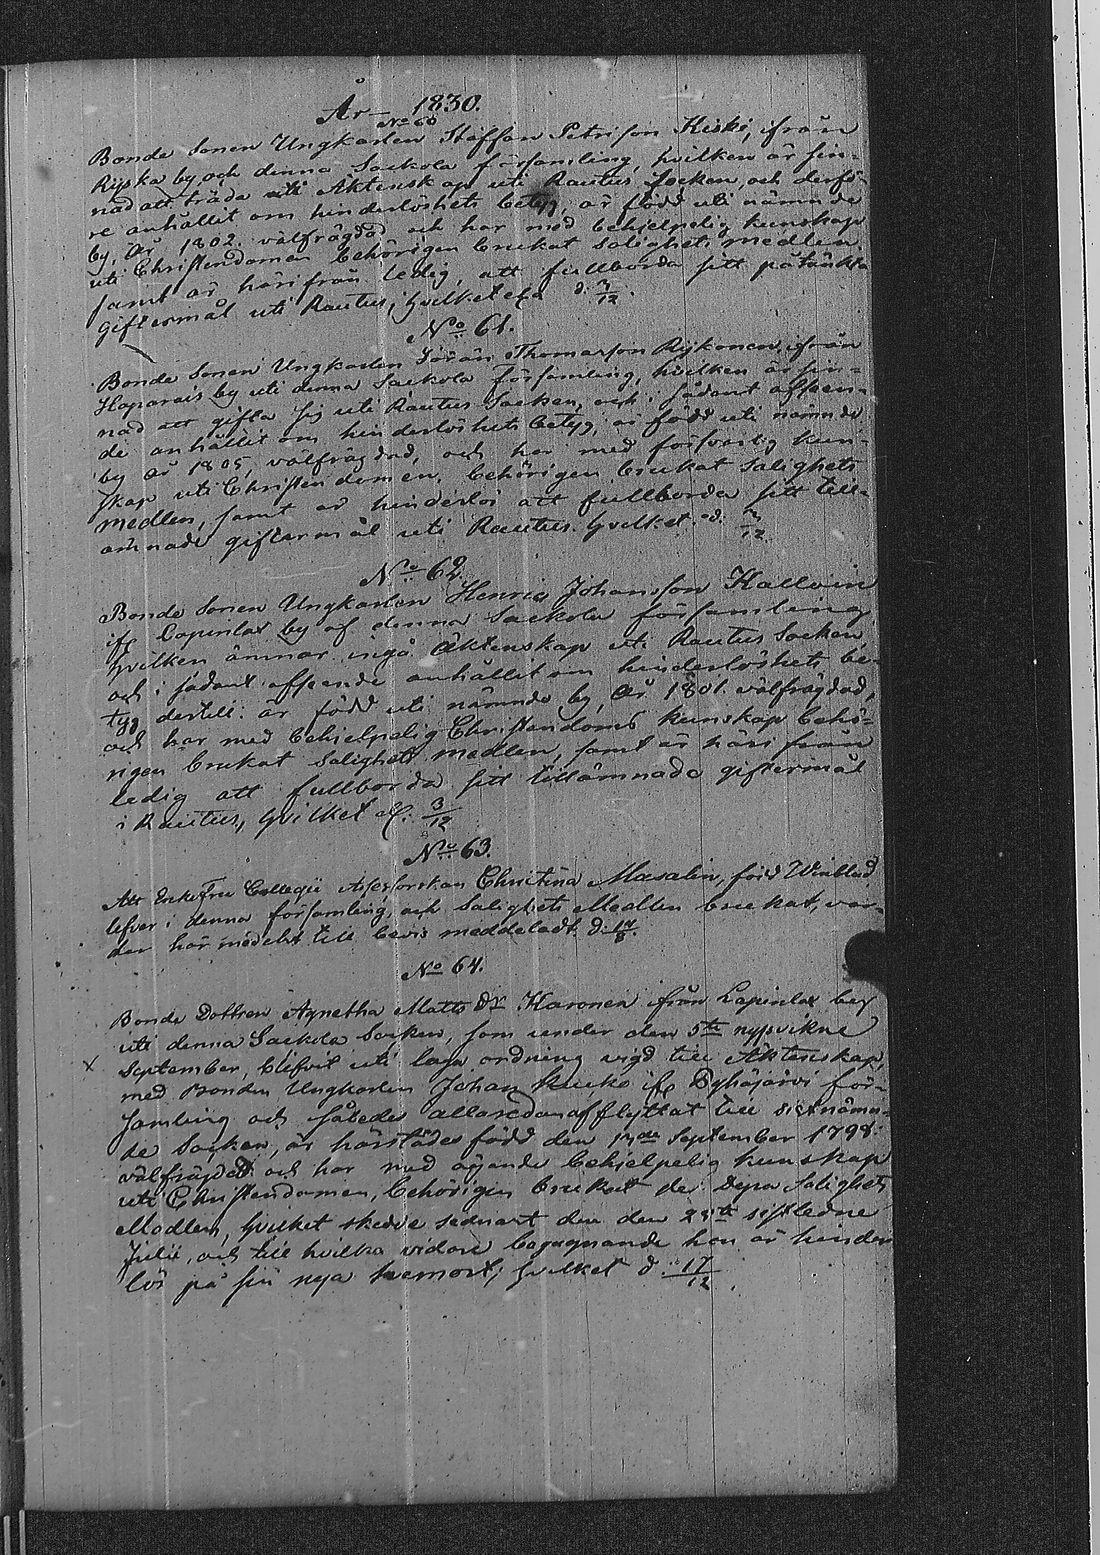 År 1830.
No 60
Bonde Sonen Ungkarlen Staffan Petrisson Kiski, ifrån
Rijska by, och denna Sackola församling, hvilken är sin-
nad att träda uti Äktenskap uti Rautus Socken, och derfö-
re anhållit om hinderlöshets betyg, är född uti nämnde
by, År 1802. välfrägdad och har med behjelpelig kunskap
uti Christendomen behörigen brukat Salighets medlen
samt är härifrån ledig, att fullborda sitt påtänkta
giftermål uti Rautus, hvilket d. 3/12.
No 61.
Bonde Sonen Ungkarlen Göran Thomasson Rijkonen, ifrån
Haparais by uti denna Sackola församling, hvilken är sin-
nad att gifta sig uti Rautus Socken, och i sådant afseen-
de anhållit om hinderlöshets betyg, är född uti nämnde
by År 1805, välfrägdad, och har med försvarlig kun-
skap uti Christendomen, behörigen brukat Salighets
medlen, samt är hinderlös att fullborda sitt till-
ämnade giftermål uti Rautus. hvilket d. 3/12
No 62.
Bonde Sonen Ungkarlen Henric Johansson Kallvin
ifr Lapinlax by af denna Sackola församling
hvilken ämnar ingå Äktenskap uti Rautus Socken
och i sådant afseende anhållit om hinderlöshets be-
tyg dertill. är född uti nämnde by, År 1801. välfrägdad,
och har med behjelpelig Christendoms kunskap behö-
rigen brukat Salighets medlen, samt är härifrån
ledig att fullborda sitt tillämnade giftermål
i Rautus, hvilket 3/12
No 63.
Att Enke Fru Collegii Assessorskan Christina Masalin, född Winblad
lefver i denna församling, och Salighets Medlen brukat, var-
der här medelst till bevis meddeladt. d.
No 64.
Bonde Dottren Agnetha Matts dr Karonen ifrån Lapinlax by
uti denna Sackola Socken, som under den 5te nyssvikne
x September, blifvit uti laga ordning vigd till Äktenskap,
med Bonden Ungkarlen Johan Kucko ifr Pyhäjärvi för-
samling och således allaredan afflyttat till sistnämn-
de Socken, är härstädes född den September 1798
välfrägdad och har med ägande behjelpelig kunskap
uti Christendomen, behörigen brukat de Dyra Salighets
Medlen, hvilket skedde sednast den 25te sistledne
Julii, och till hvilka vidare begagnande hon är hinder
lös på sin nya hemort, hvilket d. 17/12.